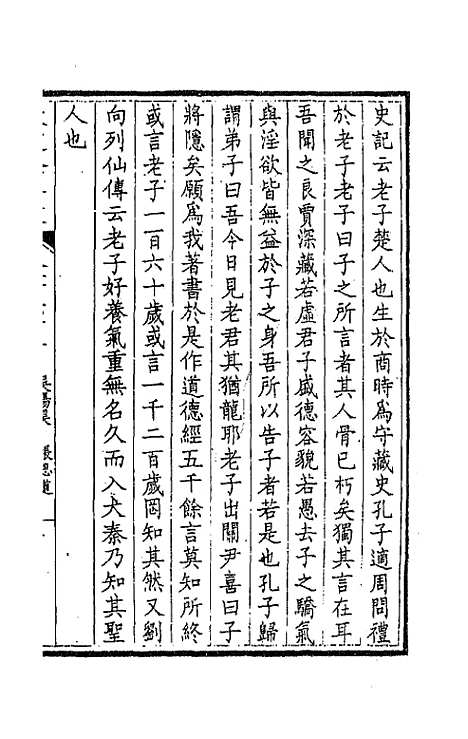 史記云老子楚人也生於商時為守藏史孔子適周問禮
於老子老子曰子之所言者其人骨已朽矣獨其言在耳
吾聞之良賈深藏若虛君子盛德容貌若愚去子之驕氣
與淫欲皆無益於子之身吾所以告子者若是也孔子歸
謂弟子曰吾今日見老君其猶龍耶老子出關尹喜曰子
將隱矣願為我著書於是作道德經五千餘言莫知所終
或言老子一百六十歲或言一千二百歲罔知其然又劉
向列仙傳云老子好養氣重無名久而入大秦乃知其聖
人也
張恩道